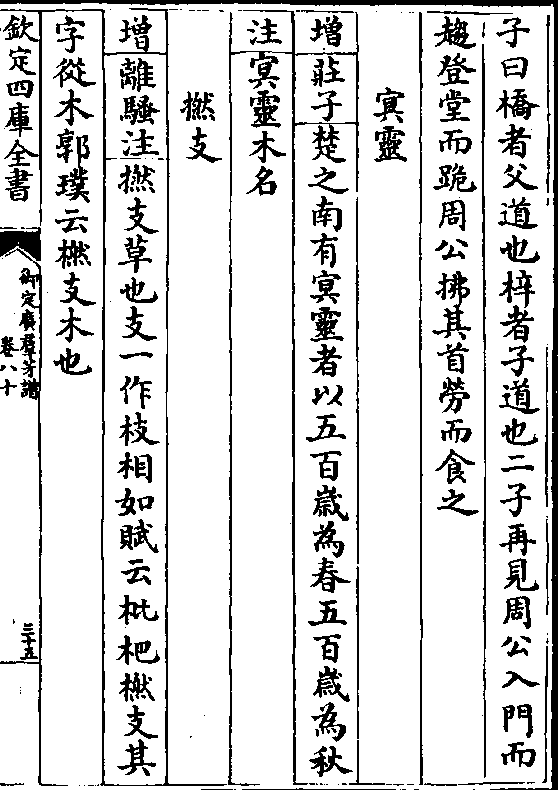 子曰橋者父道也梓者子道也二子再見周公入門而
趨登堂而跪周公拂其首勞而食之
冥靈
增莊子楚之南有冥靈者以五百歲為春五百歲為秋
注冥靈木名
橪支
增離騷注橪支草也支一作枝相如賦云枇杷橪支其
字從木郭璞云橪支木也
欽定四庫全書
御定廣羣芳譜
卷八十
三十五